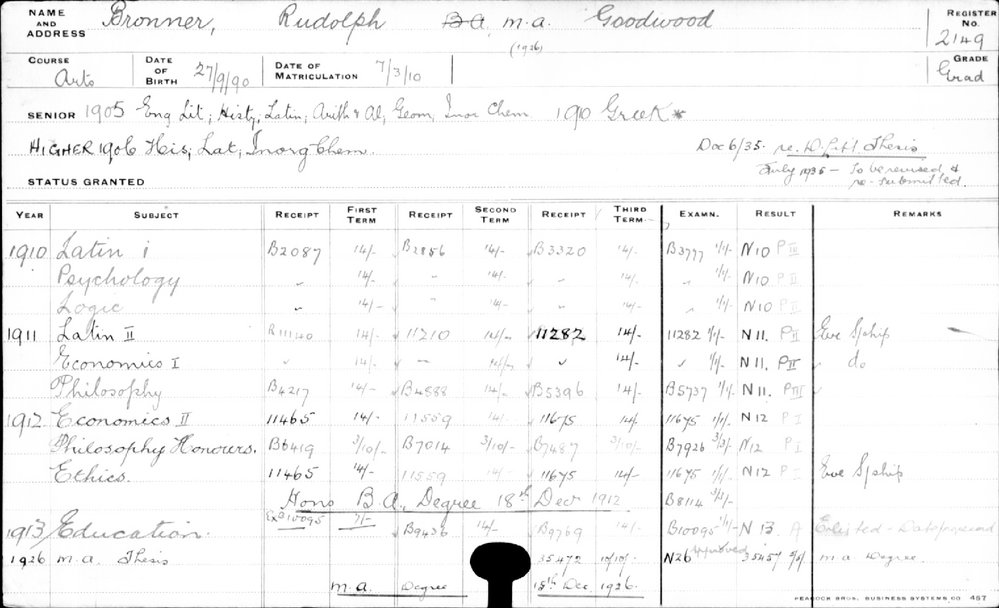 NAME AND ADDRESS Bronner, Rudolph B.A. M.A. Goodwood REGISTER No. 2149
(1926)
COURSE Arts DATE OF BIRTH 27/9/90 DATE OF MATRICULATION 7/3/10 GRADE Grad
SENIOR 1905 Eng Lit; Histy; Latin; Arith & Al; Geom; Inor Chem 1910 Greek*
HIGHER 1906 His; Lat; Inorg Chem. Dec 6/35. re. D.Litt. Thesis
July 1936 — To be revised & re-submitted.
STATUS GRANTED
YEAR SUBJECT RECEIPT FIRST TERM RECEIPT SECOND TERM RECEIPT THIRD TERM EXAMN. RESULT REMARKS
1910 Latin I B2087 14/- B2856 14/- B3320 14/- B3777 1/1/- N10 P III
Psychology " 14/- " 14/- " 14/- " 1/1/- N10 P II
Logic 14/- " 14/- " 14/- " 1/1/- N10 P II
1911 Latin II R11140 14/- 11210 14/- 11282 14/- 11282 1/1/- N11. P II Eve Sship
Economics I " 14/- " 14/- " 14/- " 1/1/- N11. P II do
Philosophy B4217 14/- B4588 14/- B5396 14/- B5737 1/1/- N11. P III
1912 Economics II 11465 14/- 11559 14/- 11675 14/- 11675 1/1/- N12 P I
Philosophy Honours. B6419 3/10/- B7014 3/10/- B7487 3/10/- B7926 3/3/- N12 P I
Ethics. 11465 14/- 11559 14/- 11675 14/- 11675 1/1/- N12 P I Eve Sship
Hons B.A. Degree 18th Decr 1912 B8114 3/3/-
1913 Education. Ex B10095 7/- B9436 14/- B9769 14/- B10095 1/- N 13 A Enlisted -
1926 M.A. Thesis 35472 10/10/- N26 Approved 35457 5/5/- M.A. Degree.
M.A. Degree 15th Dec 1926.
PEACOCK BROS. BUSINESS SYSTEMS CO 457